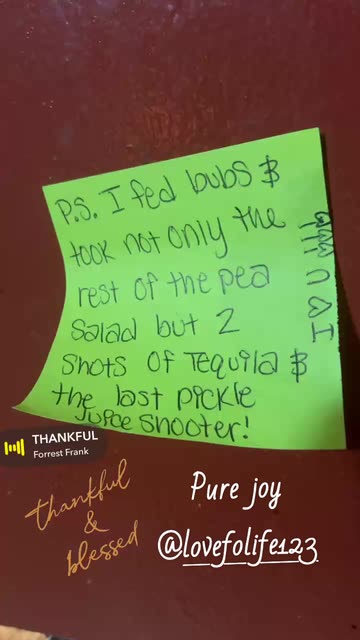 P.S. I fed bubs &
took not only the
rest of the pea
salad but 2
shots of Tequila &
the last pickle
juice shooter!
I ♡ U
THANKFUL
Forrest Frank
thankful
&
blessed
Pure joy
@lovefolife123